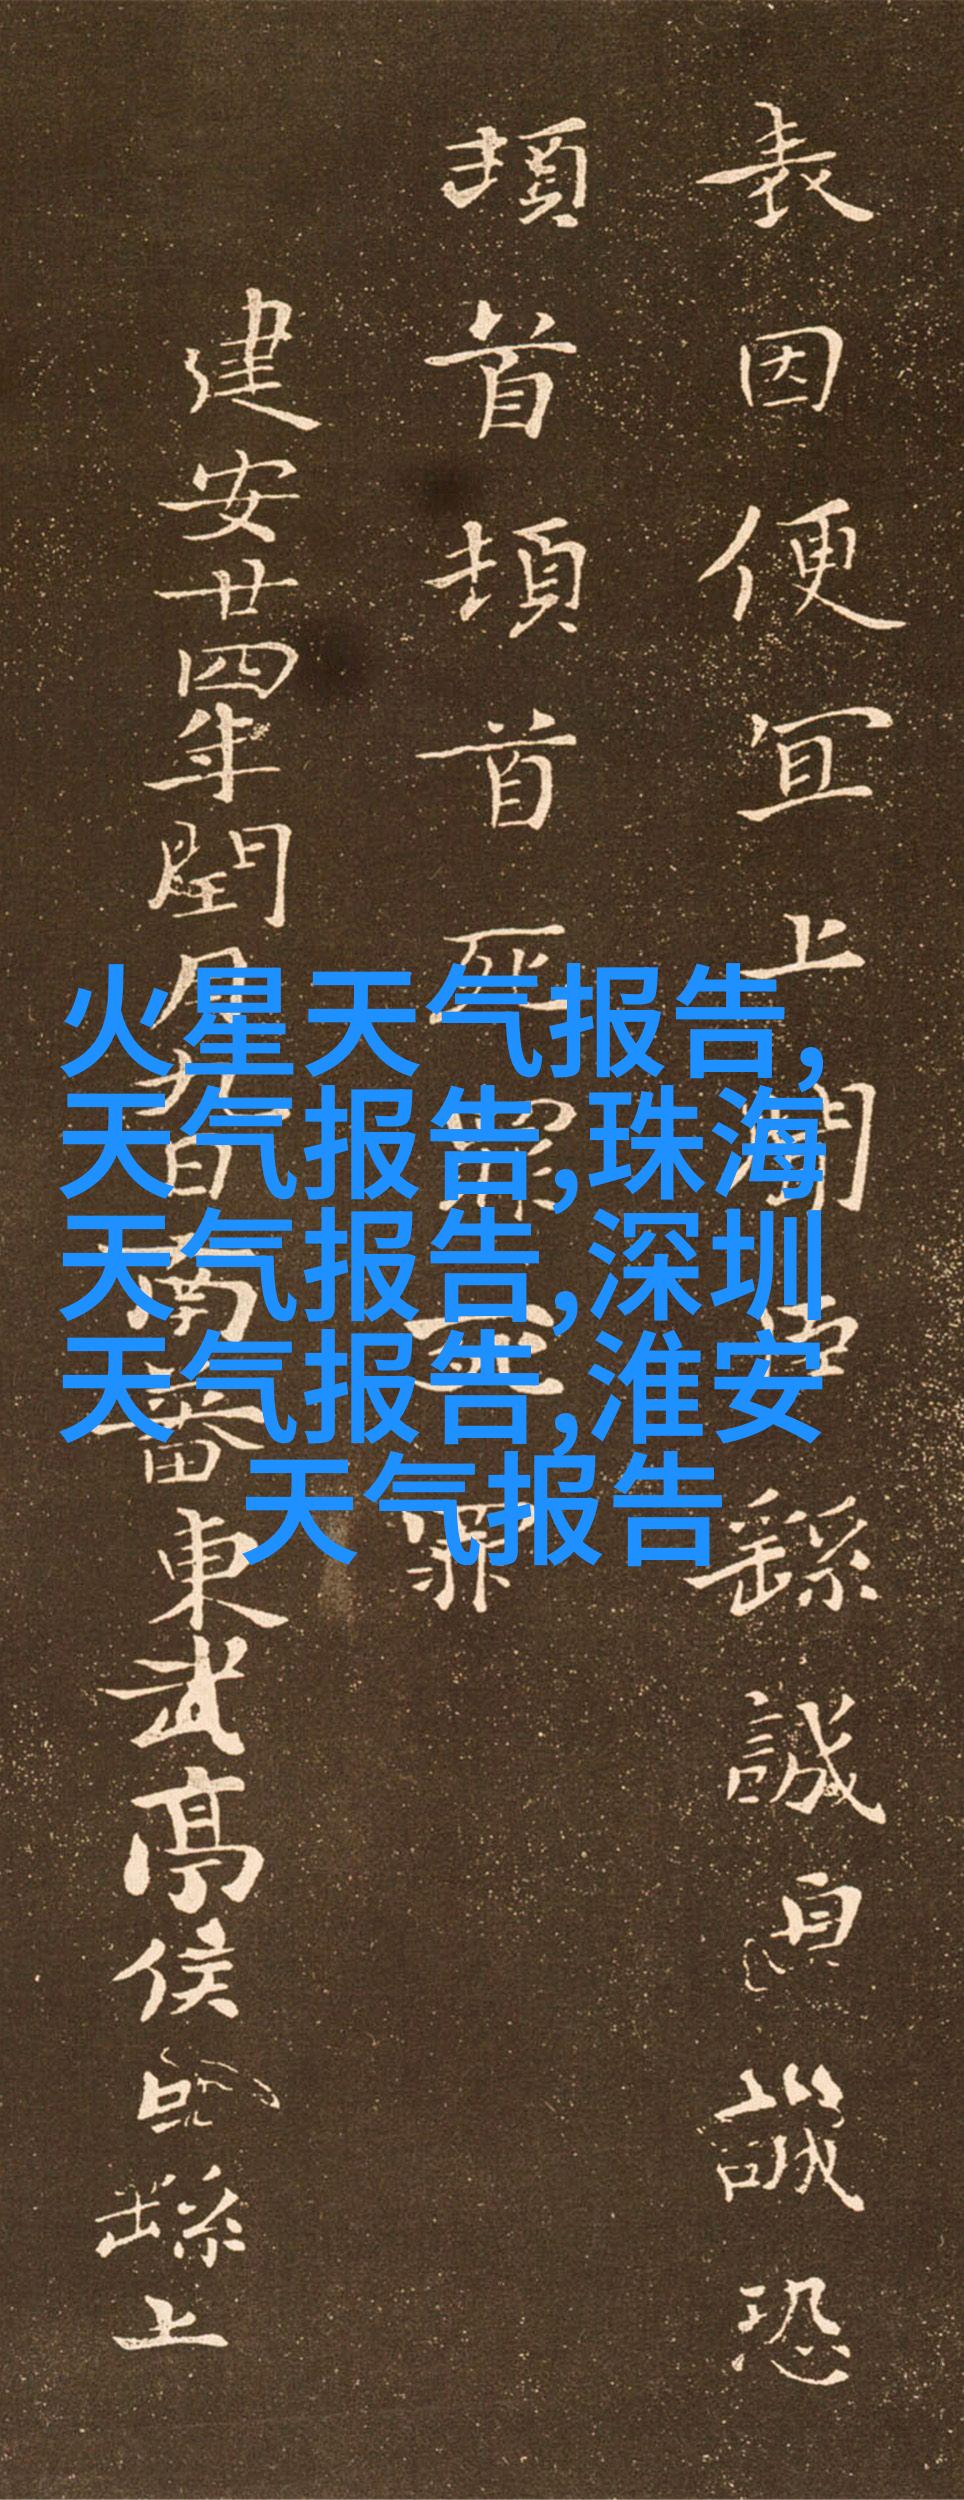 表因便宜上聞臣繇誠皇誠恐
頓首頓首死罪死罪
建安廿四年閏月九日南蕃東武亭侯臣繇上
火星天气报告,
天气报告,珠海
天气报告,深圳
天气报告,淮安
天气报告